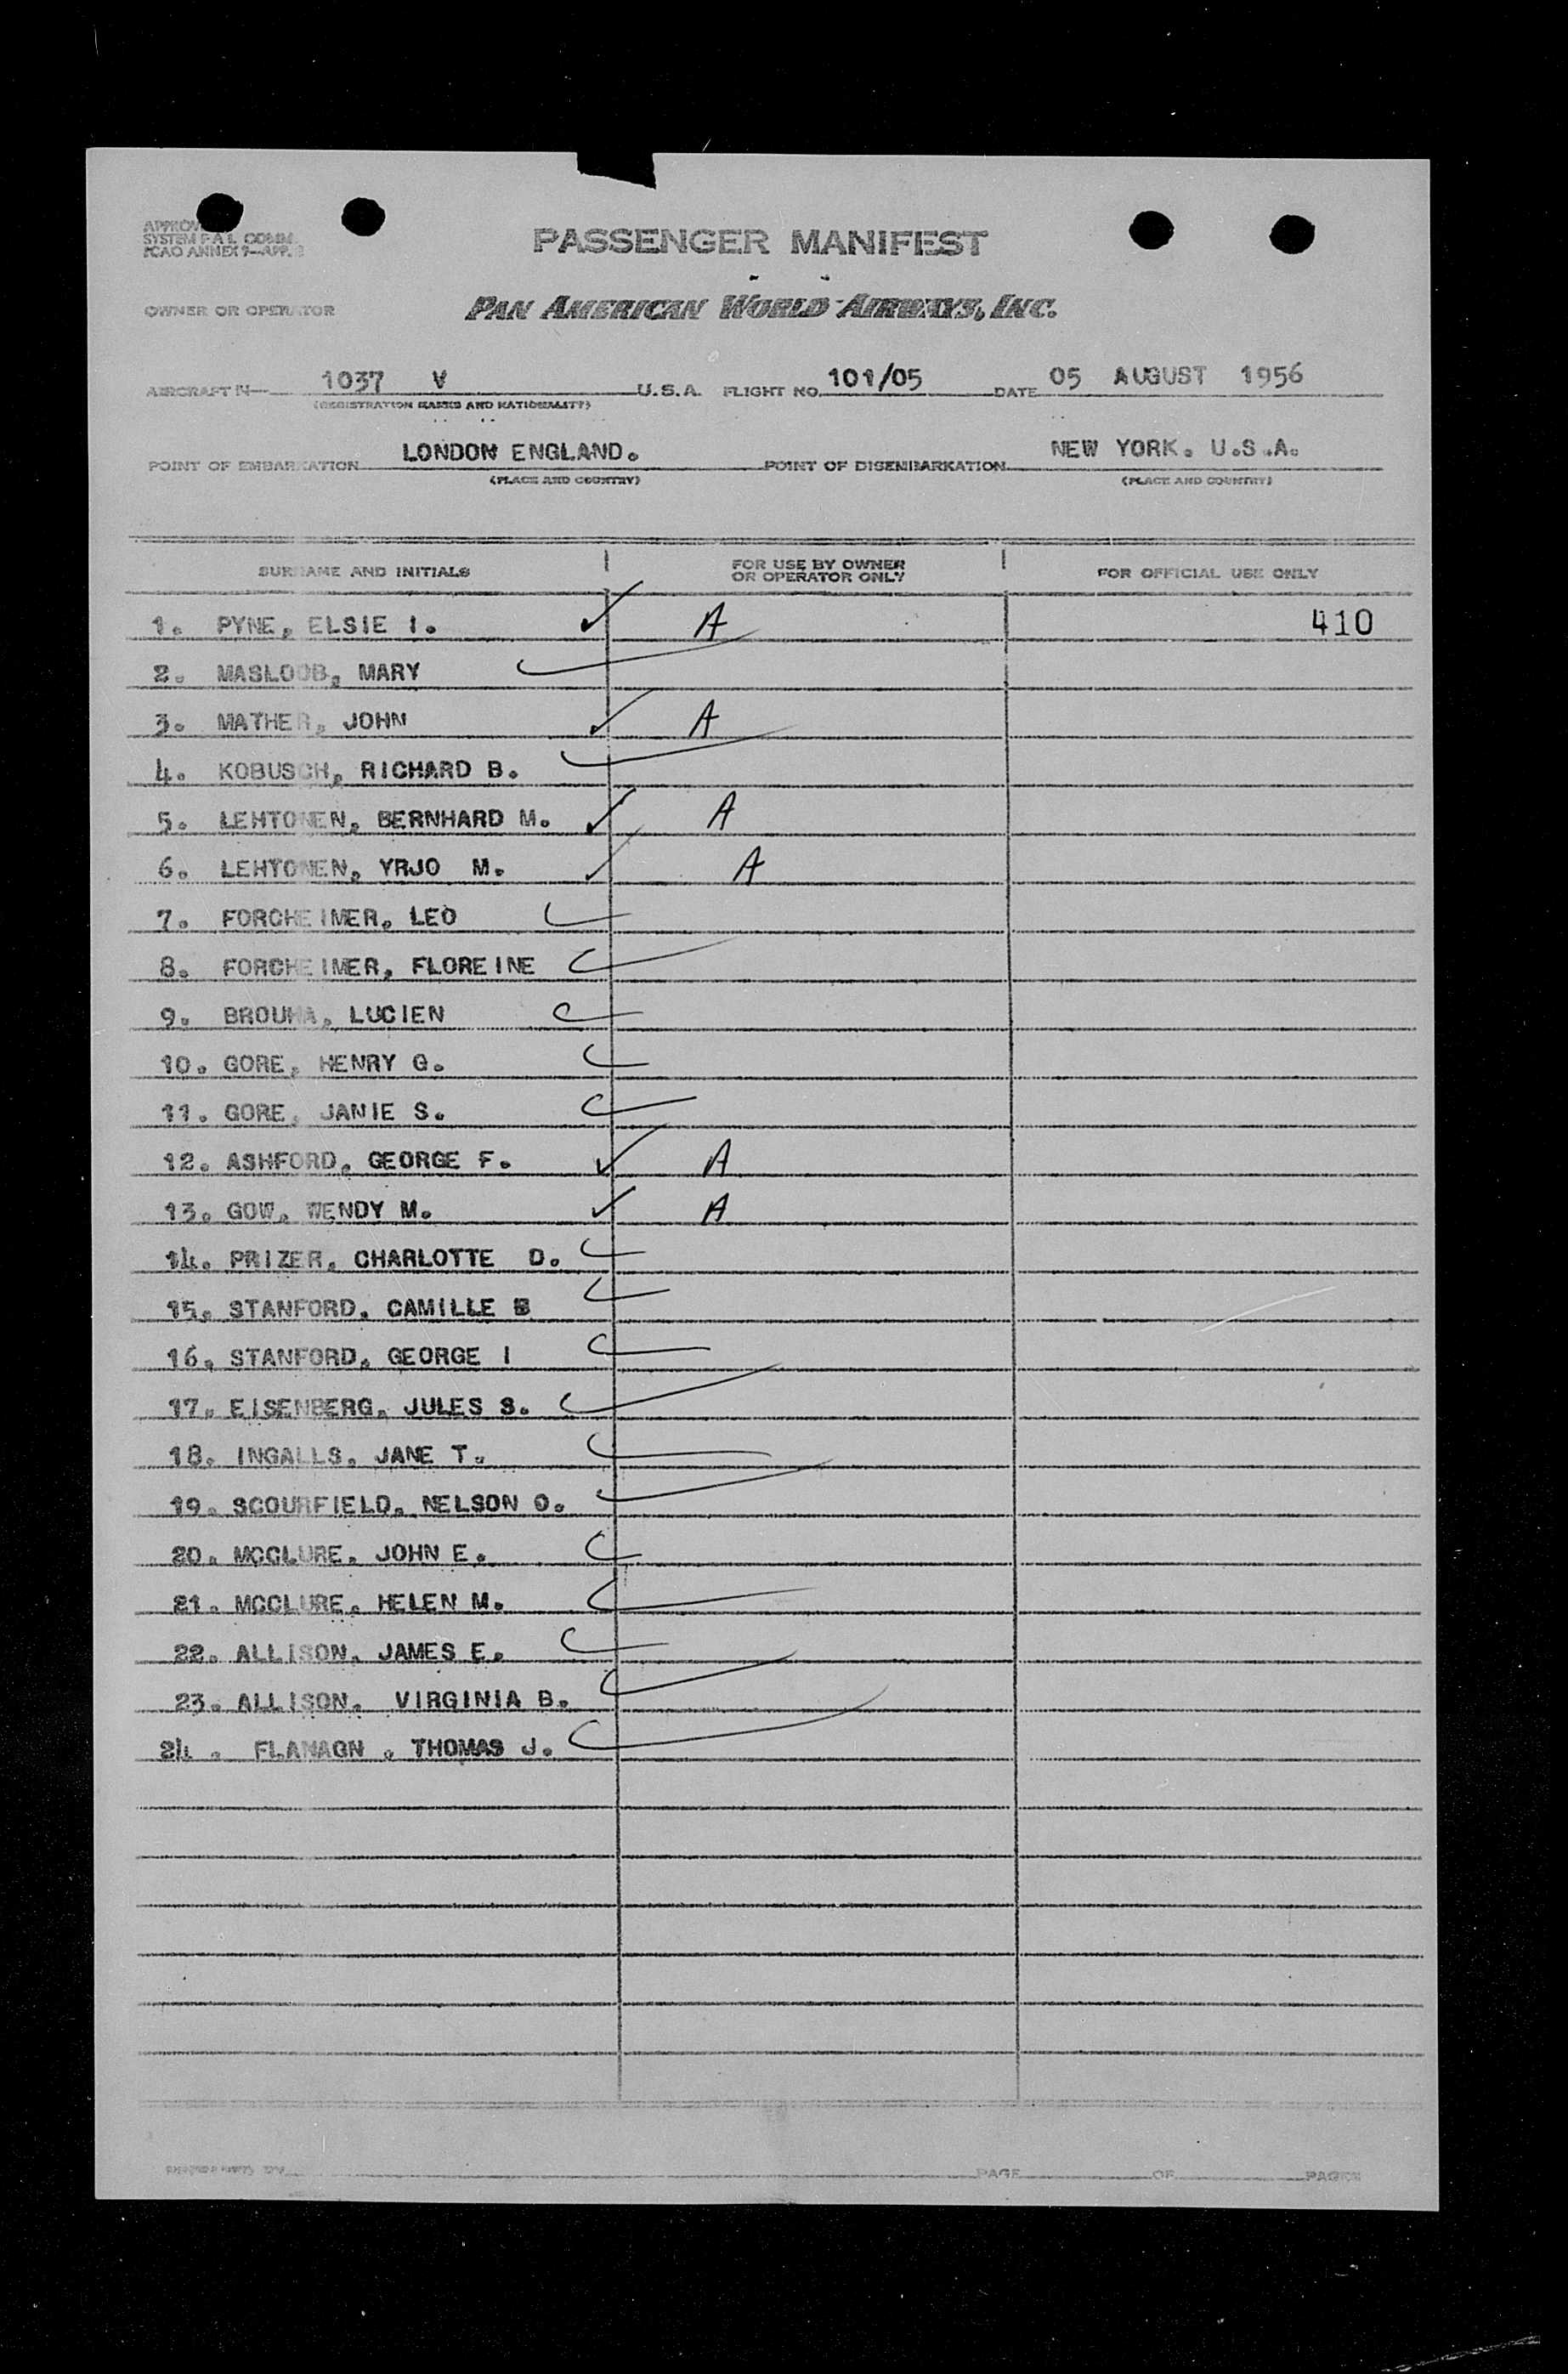 SYSTEM F A L COMM.
ICAO ANNEX 9—APP. 3
PASSENGER MANIFEST
OWNER OR OPERATOR PAN AMERICAN WORLD AIRWAYS, INC.
AIRCRAFT N— 1037 V U.S.A. FLIGHT NO. 101/05 DATE 05 AUGUST 1956
(REGISTRATION MARKS AND NATIONALITY)
POINT OF EMBARKATION LONDON ENGLAND. POINT OF DISEMBARKATION NEW YORK. U.S.A.
(PLACE AND COUNTRY) (PLACE AND COUNTRY)
SURNAME AND INITIALS FOR USE BY OWNER OR OPERATOR ONLY FOR OFFICIAL USE ONLY
1. PYNE, ELSIE I. ✓ A 410
2. MASLOOB, MARY ✓
3. MATHER, JOHN ✓ A
4. KOBUSCH, RICHARD B. ✓
5. LEHTONEN, BERNHARD M. ✓ A
6. LEHTONEN, YRJO M. ✓ A
7. FORCHEIMER, LEO ✓
8. FORCHEIMER, FLOREINE ✓
9. BROUHA, LUCIEN ✓
10. GORE, HENRY G. ✓
11. GORE, JANIE S. ✓
12. ASHFORD, GEORGE F. ✓ A
13. GOW, WENDY M. ✓ A
14. PRIZER, CHARLOTTE D. ✓
15. STANFORD, CAMILLE B ✓
16. STANFORD, GEORGE I ✓
17. EISENBERG, JULES S. ✓
18. INGALLS, JANE T. ✓
19. SCOURFIELD, NELSON O. ✓
20. MCCLURE, JOHN E. ✓
21. MCCLURE, HELEN M. ✓
22. ALLISON, JAMES E. ✓
23. ALLISON, VIRGINIA B. ✓
24. FLANAGN, THOMAS J. ✓
PAGE OF PAGES